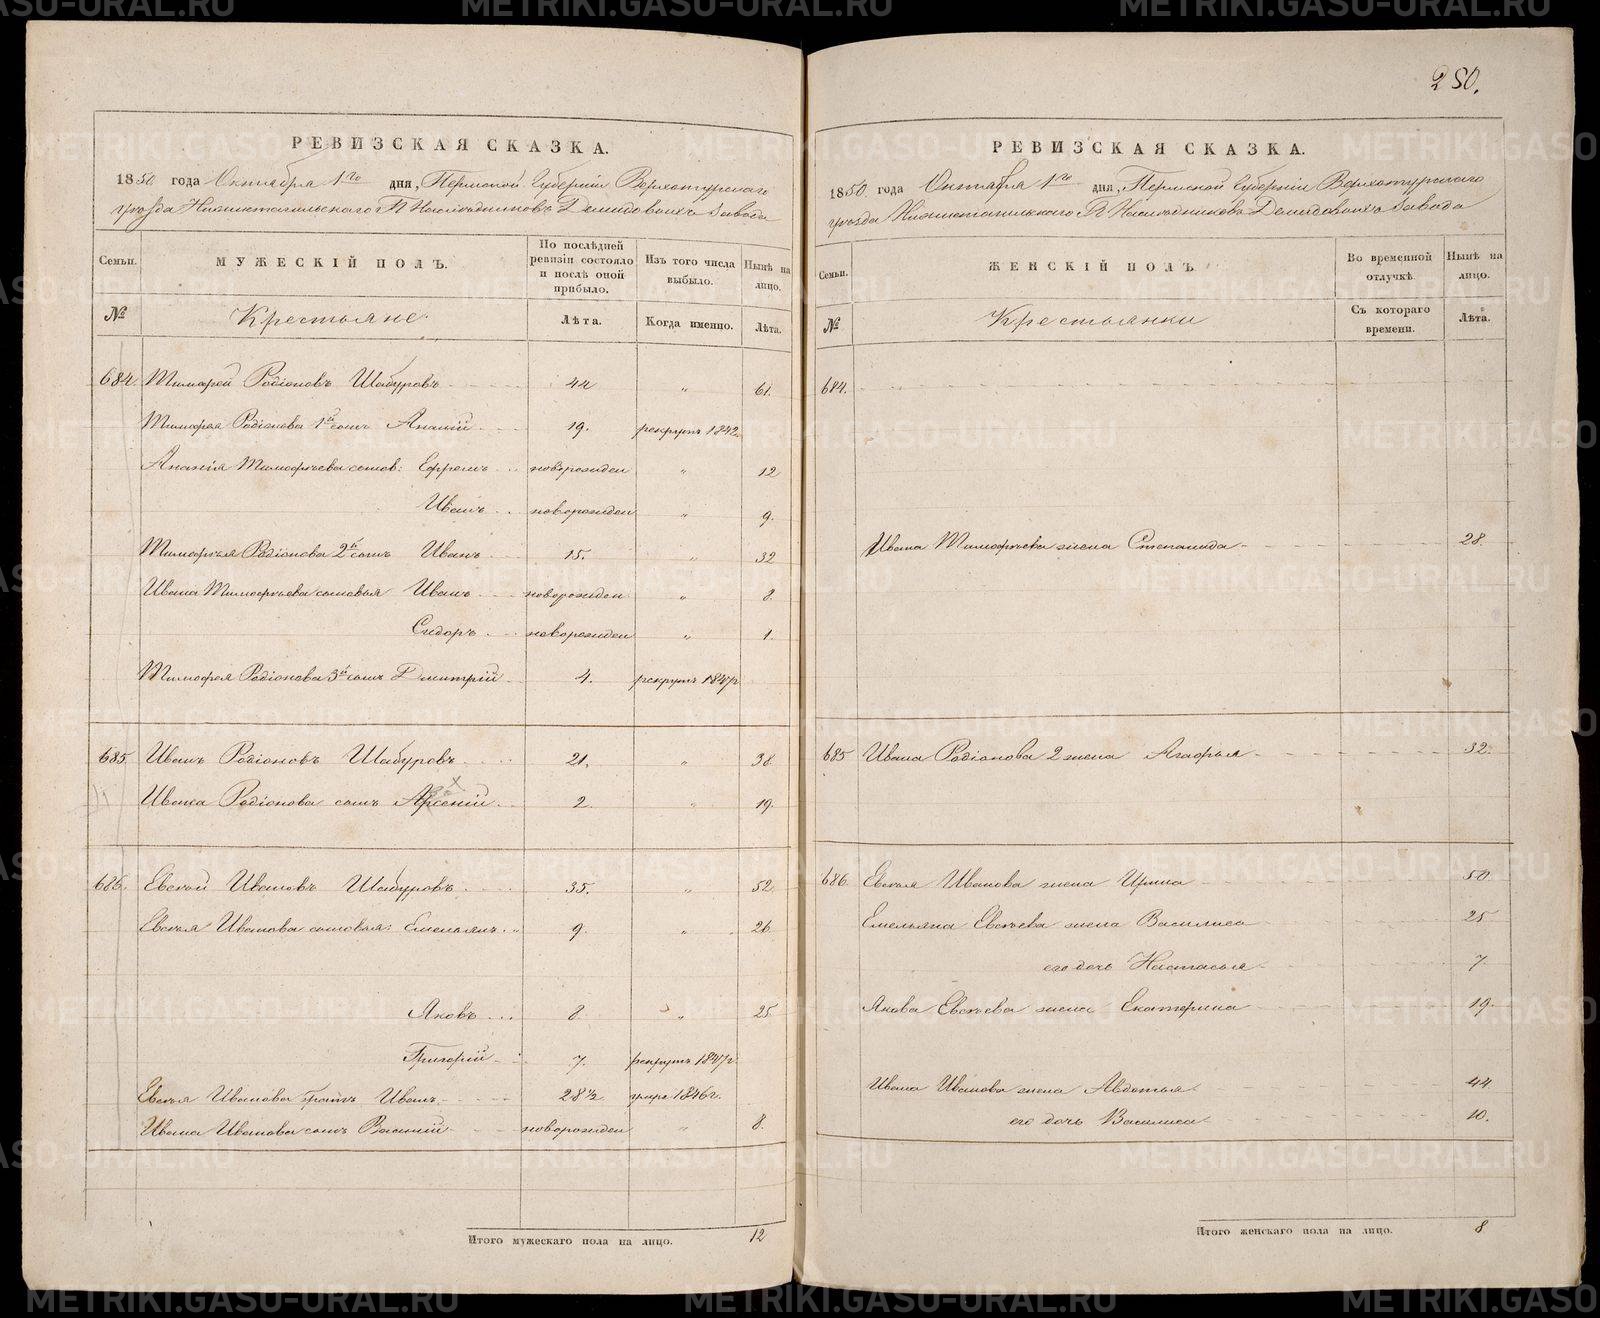 250.
РЕВИЗСКАЯ СКАЗКА.
1850 года Октября 1го дня, Пермской Губерніи Верхотурскаго
уезда Нижнетагильскаго Наследниковъ Демидовыхъ завода
Семьи. МУЖЕСКІЙ ПОЛЪ. По послѣдней ревизіи состояло и послѣ оной прибыло. Изъ того числа выбыло. Нынѣ на лицо.
№ Крестьяне Лѣта. Когда именно. Лѣта.
684. Тимофей Родіоновъ Шабуровъ 44 " 61.
Тимофея Родіонова 1й сынъ Ананій 19. рекрутъ 1842
Ананія Тимофѣева сынов: Ефремъ новорожден " 12
Иванъ новорожден " 9.
Тимофѣя Родіонова 2й сынъ Иванъ 15. " 32
Ивана Тимофѣева сыновья Иванъ новорожден " 8.
Сидоръ новорожден " 1.
Тимофея Родіонова 3й сынъ Дмитрій 4. рекрутъ 1847г
685 Иванъ Родіоновъ Шабуровъ 21. " 38
Ивана Родіонова сынъ Арсеній 2 " 19.
686. Евсей Ивановъ Шабуровъ 35. " 52
Евсея Иванова сыновья: Емельянъ 9. " 26
Яковъ 8 " 25
Григорій 7. рекрутъ 1847г
Евсея Иванова братъ Иванъ 28½ умре 1846г.
Ивана Иванова сынъ Василій новорожден " 8.
Итого мужескаго пола на лицо. 12
РЕВИЗСКАЯ СКАЗКА.
1850 года Октября 1го дня, Пермской Губерніи Верхотурскаго
уезда Нижнетагильскаго Наследниковъ Демидовыхъ завода
Семьи. ЖЕНСКІЙ ПОЛЪ Во временной отлучкѣ. Нынѣ на лицо.
№ Крестьянки Съ котораго времени. Лѣта.
684.
Ивана Тимофѣева жена Степанида 28.
685 Ивана Родіонова 2 жена Агафья 32.
686. Евсея Иванова жена Ирина 50
Емельяна Евсѣева жена Василиса 25
его дочь Настасья 7
Якова Евсѣева жена Екатерина 19.
Ивана Иванова жена Авдотья 44
его дочь Василиса 10.
Итого женскаго пола на лицо. 8
METRIKI.GASO-URAL.RU